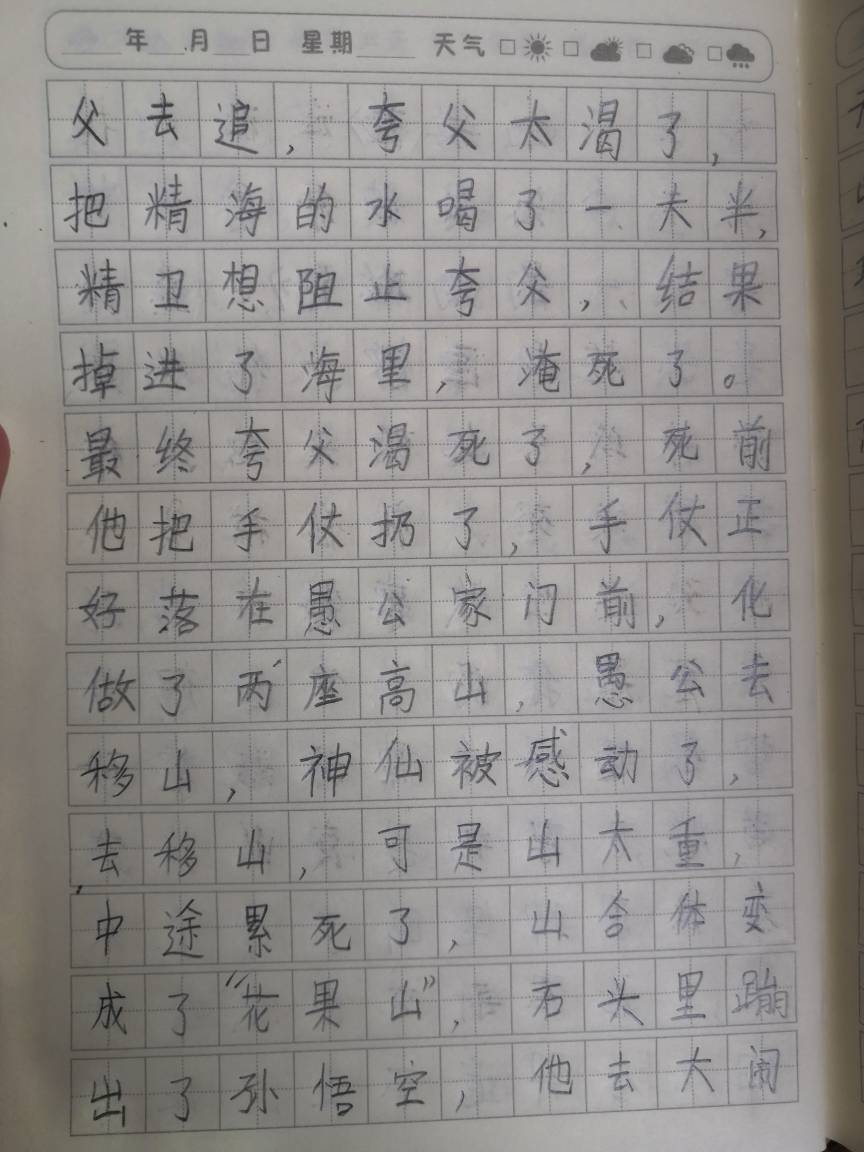 年 月 日 星期 天气
父去追，夸父太渴了，
把精海的水喝了一大半，
精卫想阻止夸父，结果
掉进了海里，淹死了。
最终夸父渴死了，死前
他把手仗扔了，手仗正
好落在愚公家门前，化
做了两座高山，愚公去
移山，神仙被感动了，
去移山，可是山太重，
中途累死了，山合体变
成了“花果山”，石头里蹦
出了孙悟空，他去大闹